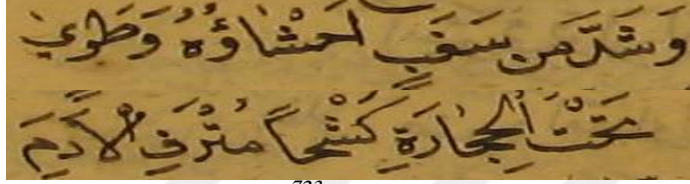 وَشَدَّ مِن سَغَبٍ احْشَاؤُهُ وَطَوٰي
تَحْتَ الْحِجَارَةِ كَشْحًا مُتْرَفَ الْاَدَمِ
723